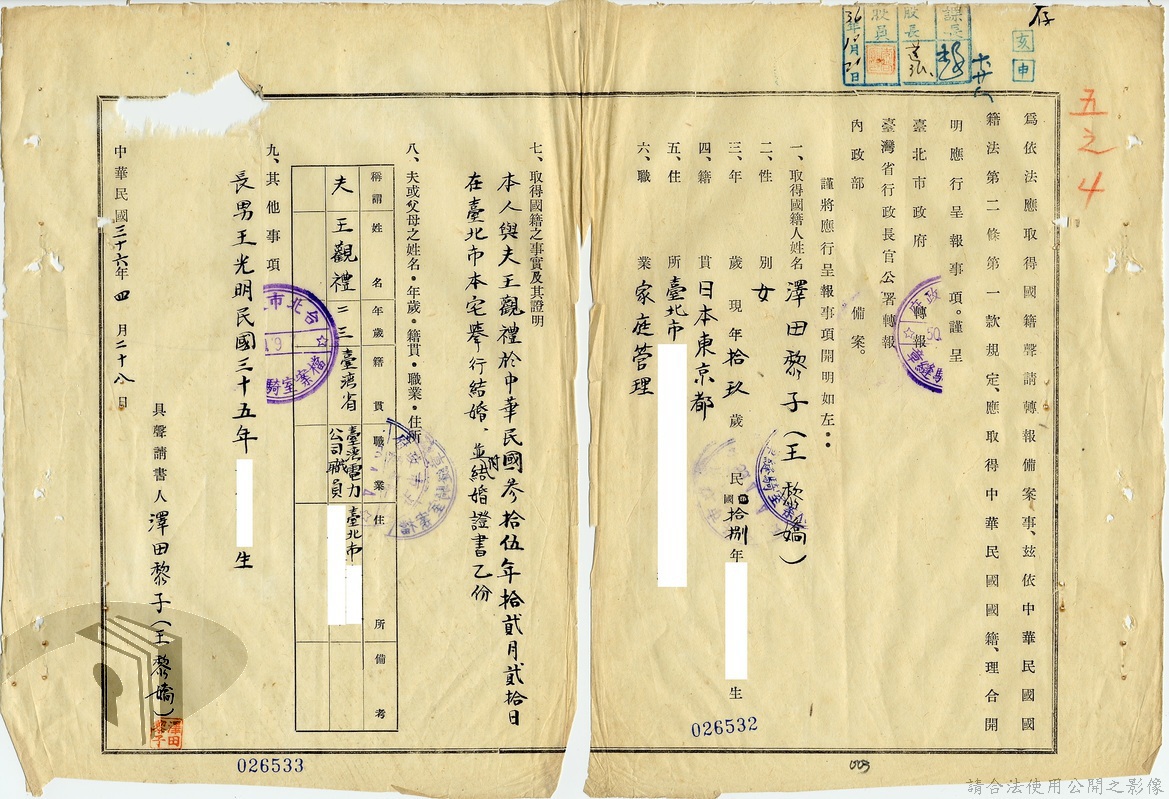 存
亥
申
課長
股長
股員
36年
月
日
五之4
為依法應取得國籍聲請轉報備案事、茲依中華民國國
籍法第二條第一款規定、應取得中華民國國籍、理合開
明應行呈報事項。謹呈
臺北市政府 轉報
臺灣省行政長官公署轉報
內政部 備案。
謹將應行呈報事項開明如左:
一、取得國籍人姓名 澤田黎子(王黎嬌)
二、性別 女
三、年歲 現年拾玖歲 民國拾捌年 生
四、籍貫 日本東京都
五、住所 臺北市
六、職業 家庭管理
七、取得國籍之事實及其證明
本人與夫王觀禮於中華民國參拾伍年拾貳月貳拾日
在臺北市本宅舉行結婚、並附結婚證書乙份
八、夫或父母之姓名・年歲・籍貫・職業・住所
稱謂 姓名 年歲 籍貫 職業 住所 備考
夫 王觀禮 二三 臺灣省 臺灣電力公司職員 臺北市
九、其他事項
長男王光明民國三十五年 生
具聲請書人 澤田黎子(王黎嬌)
澤田黎子
中華民國三十六年四月二十八日
台北市
檔案室騎
026532
026533
003
請合法使用公開之影像